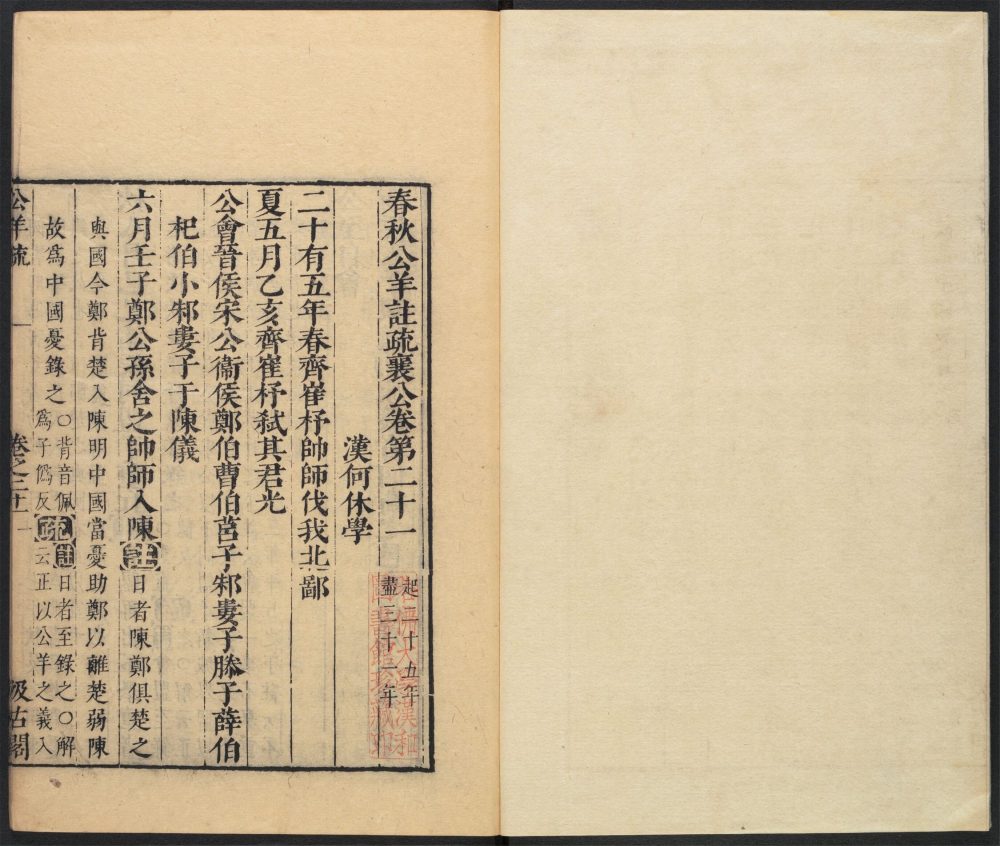 春秋公羊註疏襄公卷第二十一
起二十五年
盡三十一年
漢何休學
二十有五年春齊崔杼帥師伐我北鄙
夏五月乙亥齊崔杼弑其君光
公會晉侯宋公衞侯鄭伯曹伯莒子邾婁子滕子薛伯
杞伯小邾婁子于陳儀
六月壬子鄭公孫舍之帥師入陳註日者陳鄭俱楚之
與國今鄭背楚入陳明中國當憂助鄭以離楚弱陳
故爲中國憂錄之
○背音佩
爲于僞反
疏
註日者至錄之○解
云正以公羊之義入
公羊疏
卷之二十一
一
汲古閣